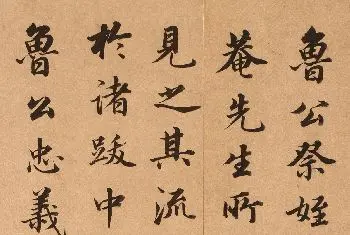 魯公祭姪
菴先生所
見之其流
於诸跋中
魯公忠義